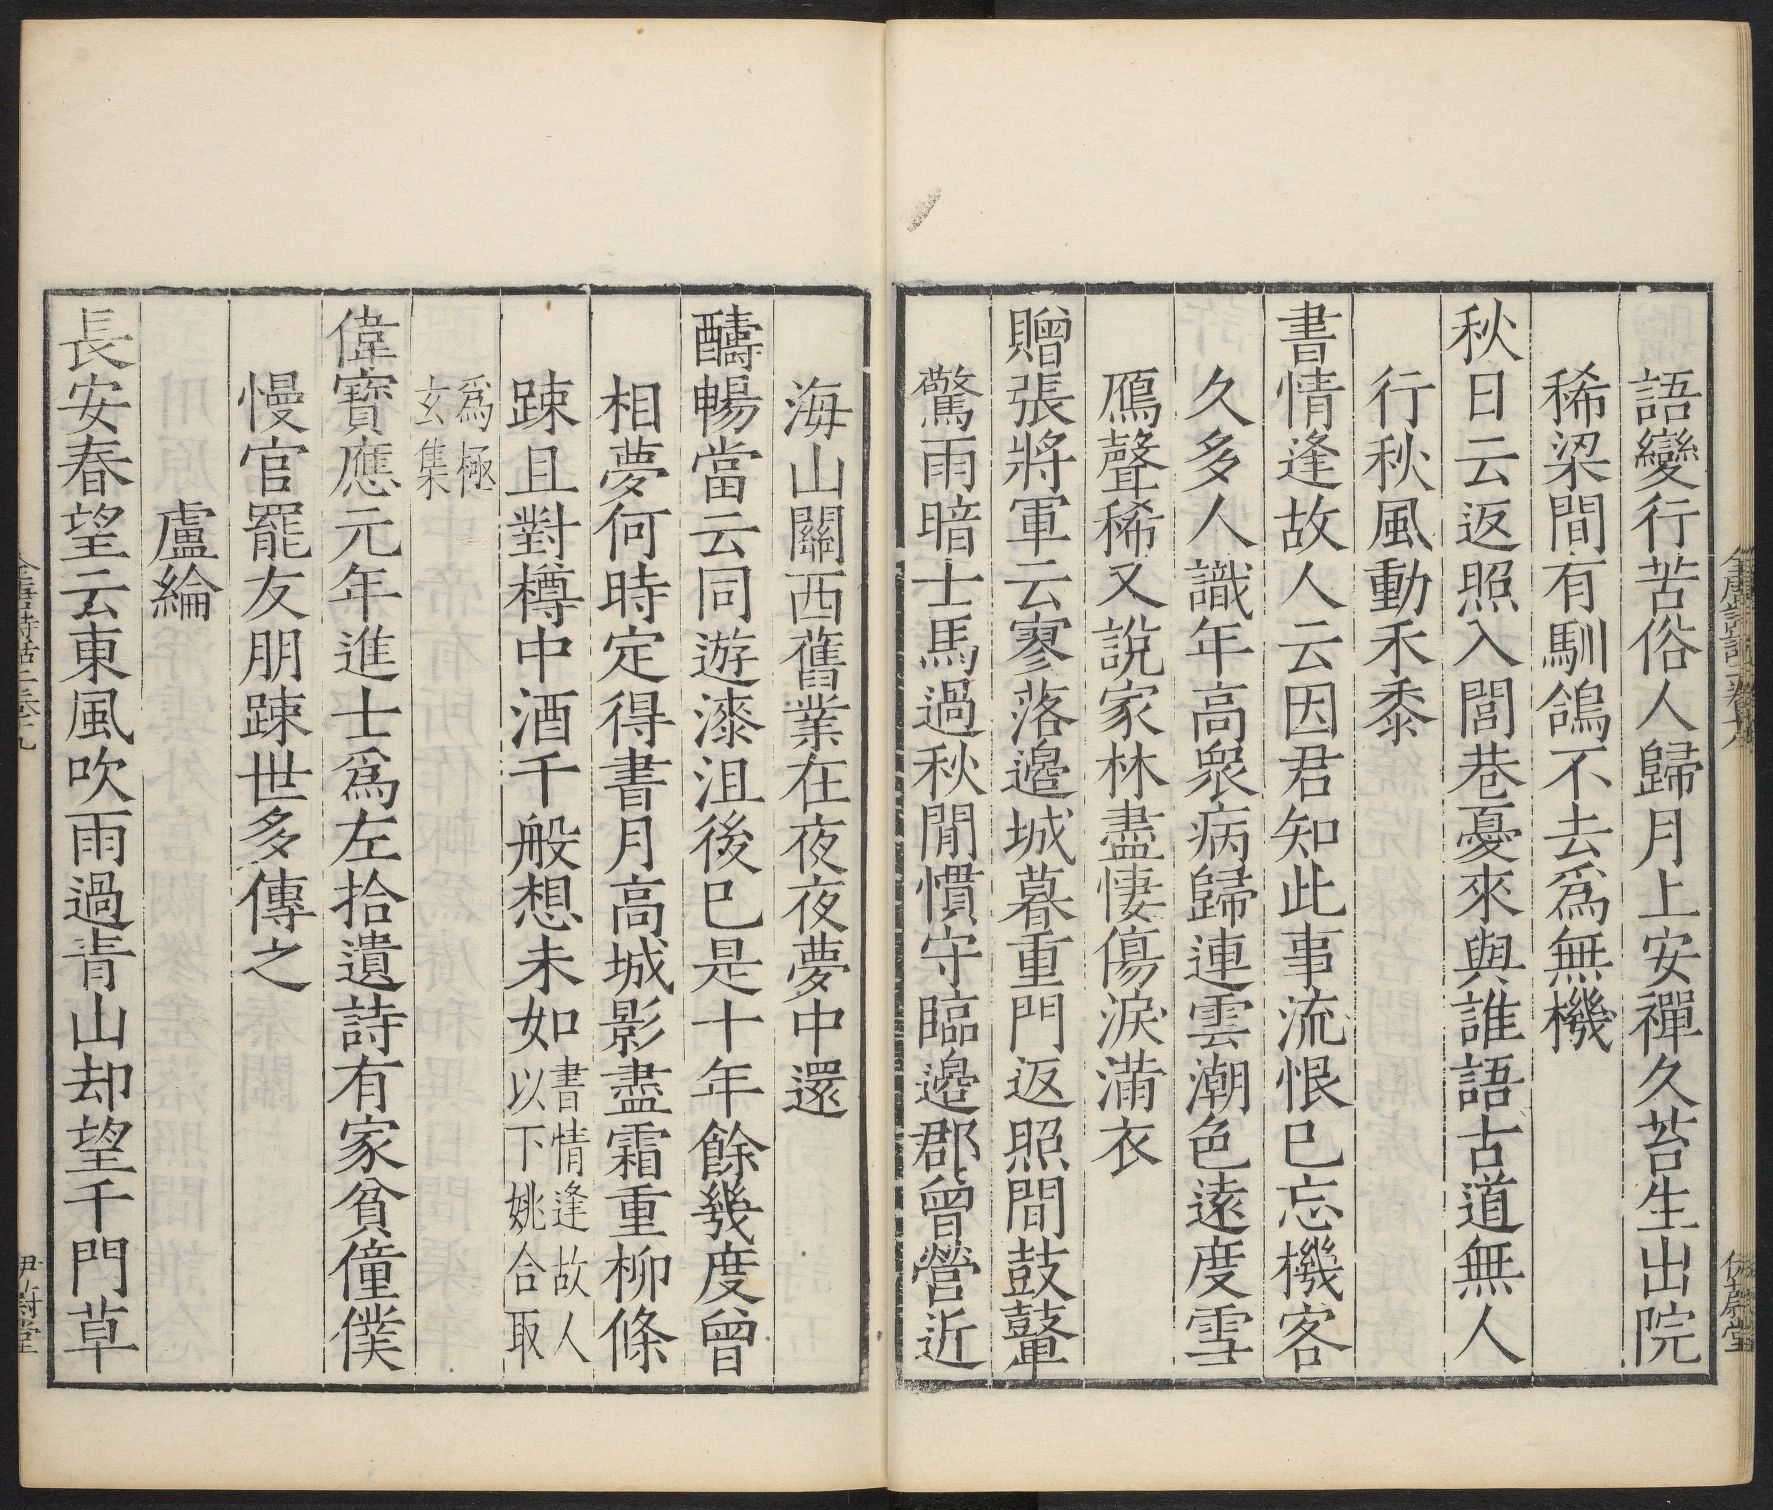 語變行苦俗人歸月上安禪久苔生出院
稀梁間有馴鴿不去爲無機
秋日云返照入閭巷憂來與誰語古道無人
行秋風動禾黍
書情逢故人云因君知此事流恨巳忘機客
久多人識年高衆病歸連雲潮色遠度雪
鴈聲稀又說家林盡悽傷淚滿衣
贈張將軍云寥落邊城暮重門返照間鼓鼙
驚雨暗士馬過秋閒慣守臨邊郡曾營近
海山關西舊業在夜夜夢中還
醻暢當云同遊漆沮後巳是十年餘幾度曾
相夢何時定得書月高城影盡霜重柳條
踈且對樽中酒千般想未如書情逢故人以下姚合取
爲極玄集
偉寶應元年進士爲左拾遺詩有家貧僮僕
慢官罷友朋踈世多傳之
盧綸
長安春望云東風吹雨過青山却望千門草